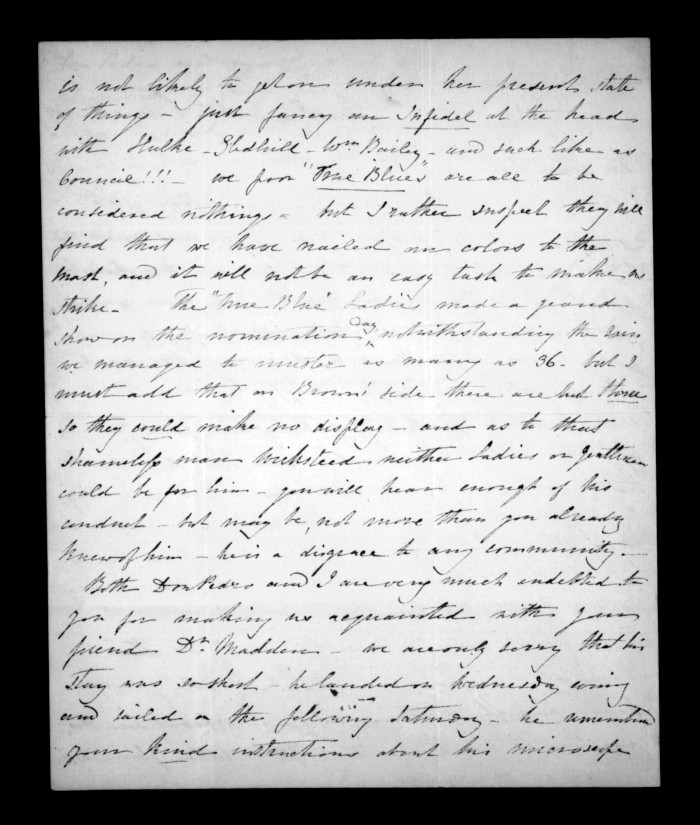 is not likely to get on under her present state
of things - just fancy an Infidel at the head
with Hulke - Gledhill - Wm Bailey - and such like as
Council!!! - we poor "True Blues" are all to be
considered nothings - but I rather suspect they will
find that we have nailed our colors to the
mast, and it will not be an easy task to make us
strike - The "True Blue" Ladies made a grand
show on the nomination Day, notwithstanding the rain
we managed to muster as many as 36 - but I
must add that on Brown's side there are but three
so they could make no display - and as to that
shameless man Wicksteed neither Ladies or Gentlemen
could be for him - you will hear enough of his
conduct - but may be, not more than you already
knew of him - he is a disgrace to any community -
Both Don Pedro and I are very much indebted to
you for making us acquainted with your
friend Dr Madden - we are only sorry that his
stay was so short - he landed on Wednesday evening
and sailed on the following Saturday - he remembered
your kind instructions about his microscope